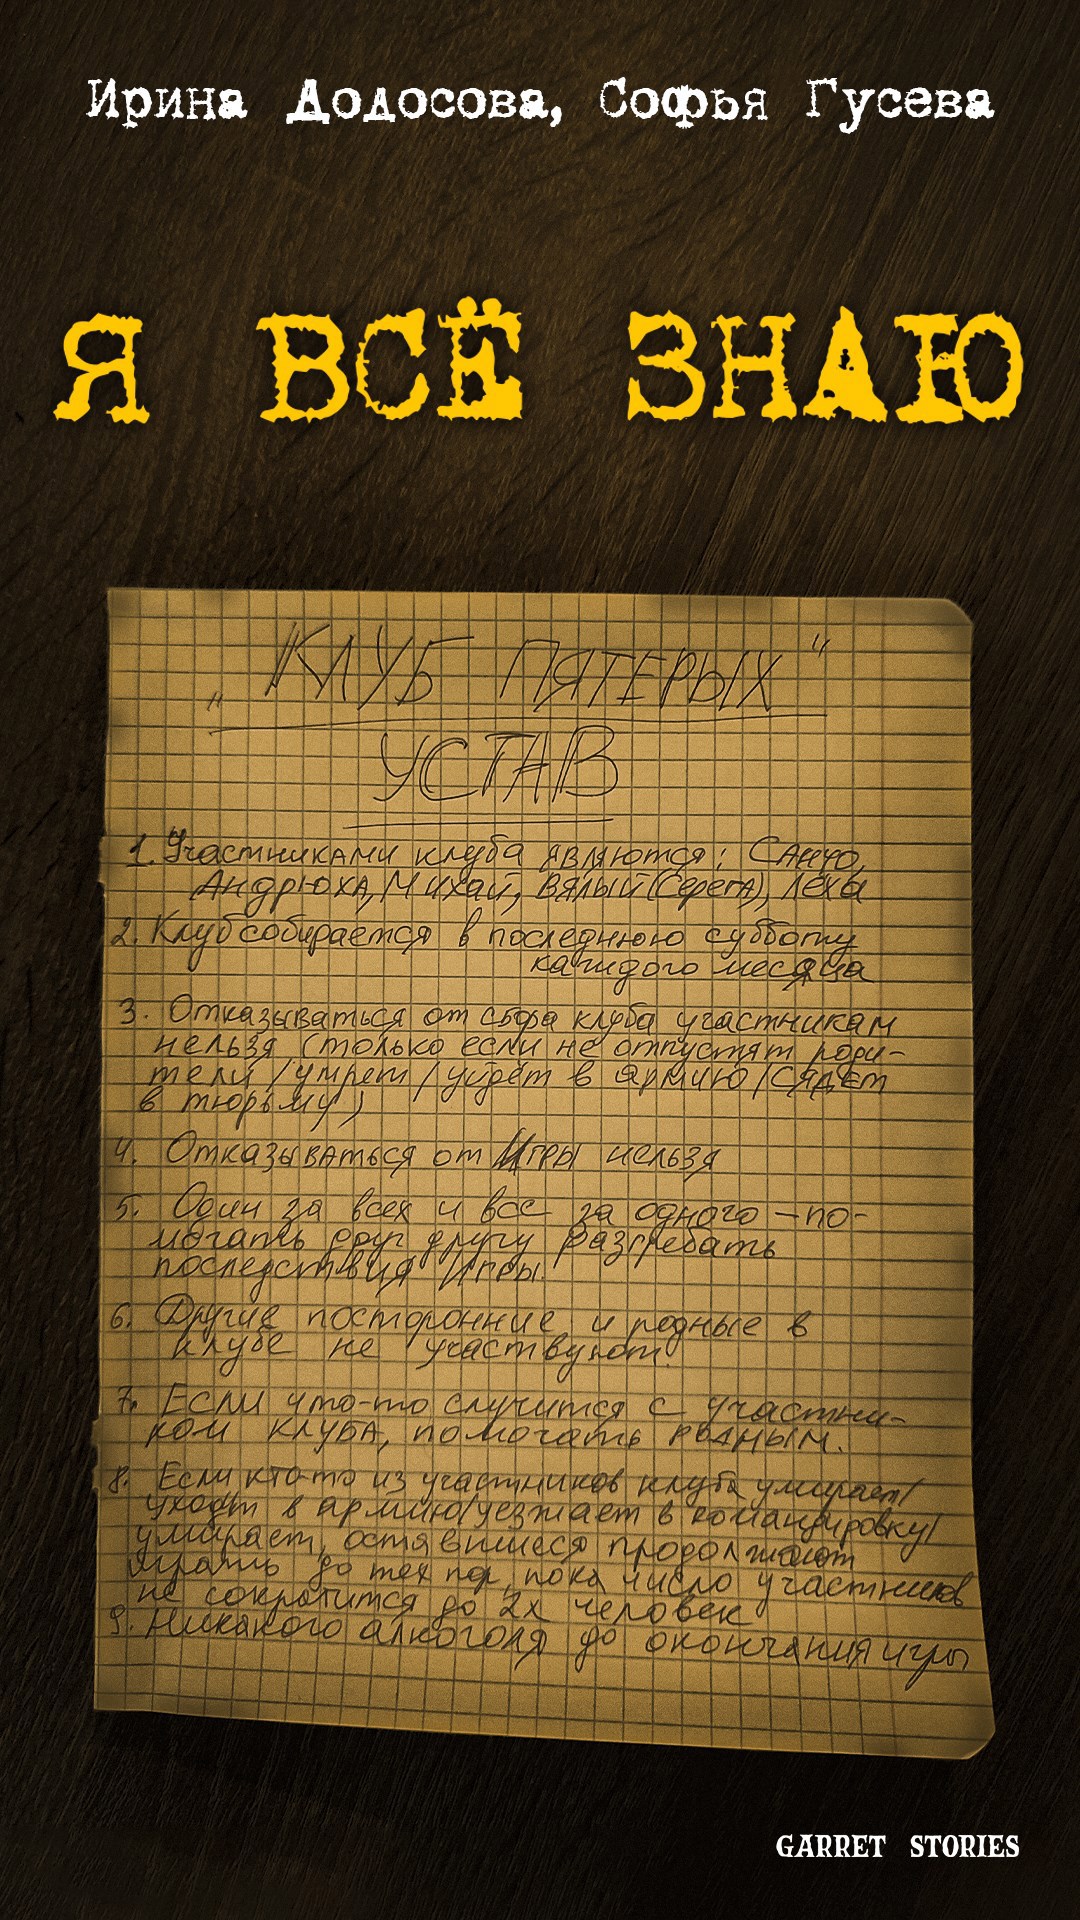 Ирина Додосова, Софья Гусева
Я ВСЁ ЗНАЮ
„КЛУБ ПЯТЕРЫХ“
УСТАВ
1. Участниками клуба являются: САНЧО,
АНДРЮХА, Михай, Вялый (Серёга), Лёха
2. Клуб собирается в последнюю субботу
каждого месяца
3. Отказываться от сбора клуба участникам
нельзя (только если не отпустят роди-
тели/умрет/уйдёт в армию/сядет
в тюрьму)
4. Отказываться от Игры нельзя
5. Один за всех и все за одного — по-
могать друг другу разгребать
последствия Игры.
6. Другие посторонние и родные в
клубе не участвуют.
7. Если что-то случится с участни-
ком клуба, помогать родным.
8. Если кто-то из участников клуба умирает/
уходит в армию/уезжает в командировку/
умирает, оставшиеся продолжают
играть до тех пор, пока число участников
не сократится до 2х человек
9. Никакого алкоголя до окончания игры
GARRET STORIES